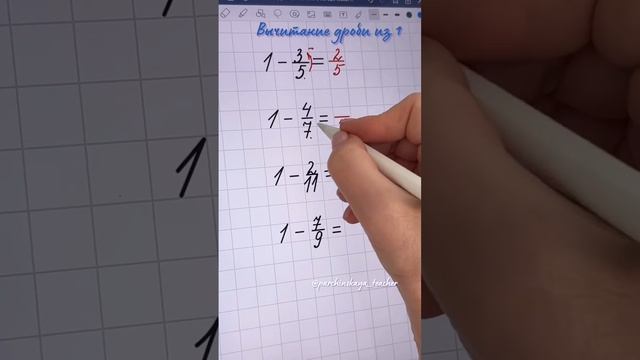 Вычитание дроби из 1
1 - 3/5 = 2/5
1 - 4/7 =
1 - 2/11 =
1 - 7/9 =
@parchinskaya_teacher